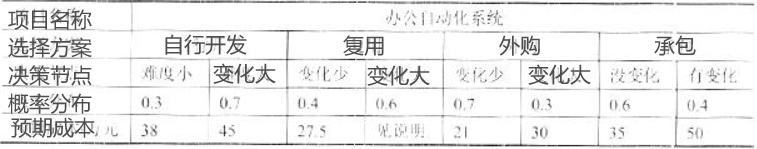 项目名称 办公自动化系统
选择方案 自行开发 复用 外购 承包
决策节点 难度小 变化大 变化少 变化大 变化少 变化大 没变化 有变化
概率分布 0.3 0.7 0.4 0.6 0.7 0.3 0.6 0.4
预期成本 元 38 45 27.5 见说明 21 30 35 50